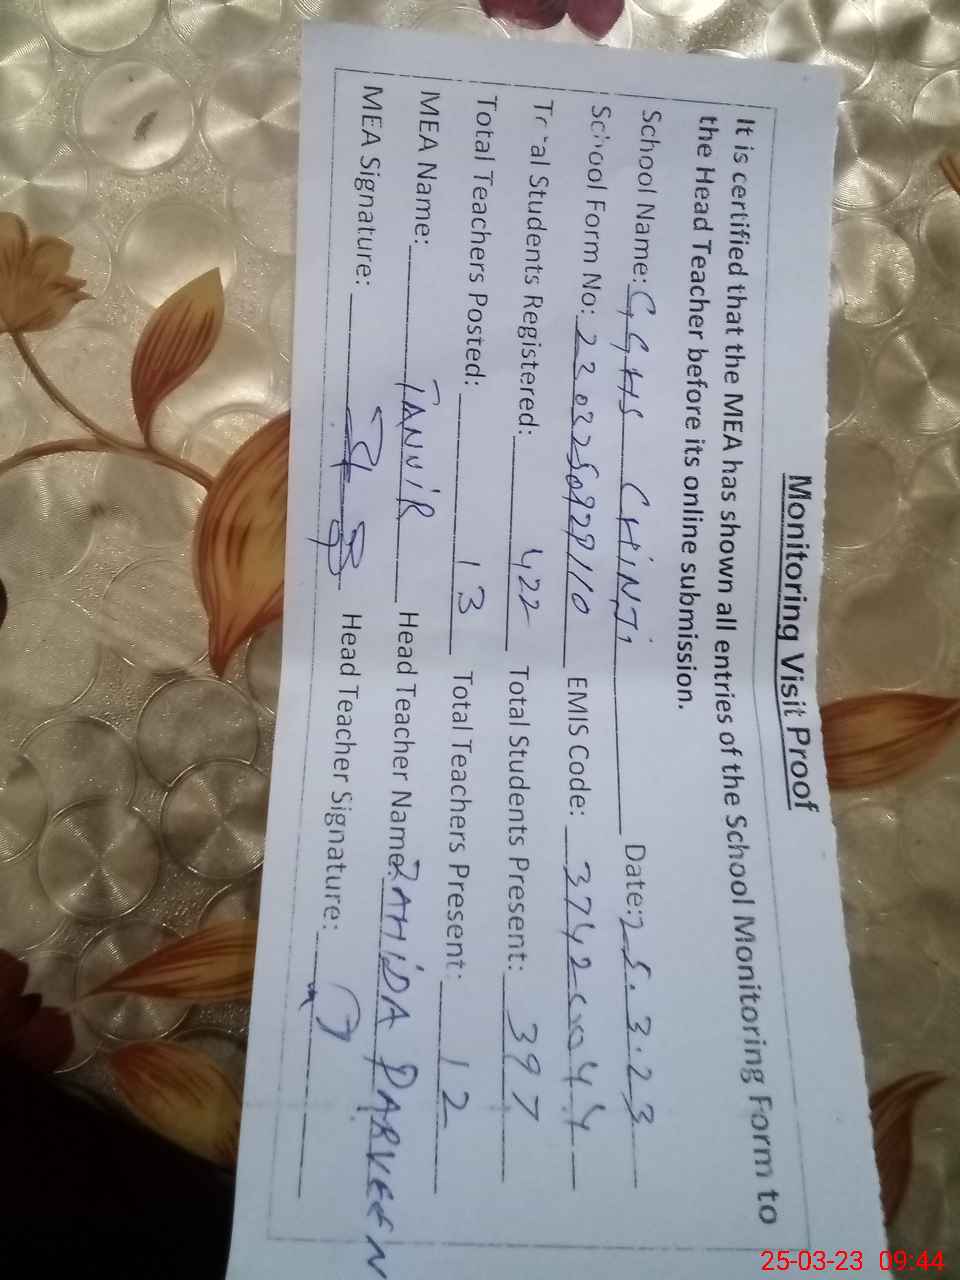 Monitoring Visit Proof
It is certified that the MEA has shown all entries of the School Monitoring Form to
the Head Teacher before its online submission.
School Name: GGHS CHINJI Date: 25.3.23
School Form No: 2203250929110 EMIS Code:
Total Students Registered: 422 Total Students Present: 397
Total Teachers Posted: 13 Total Teachers Present: 12
MEA Name: TANVIR Head Teacher Name: ZAHIDA PARVEEN
MEA Signature: Head Teacher Signature:
25-03-23 09:44